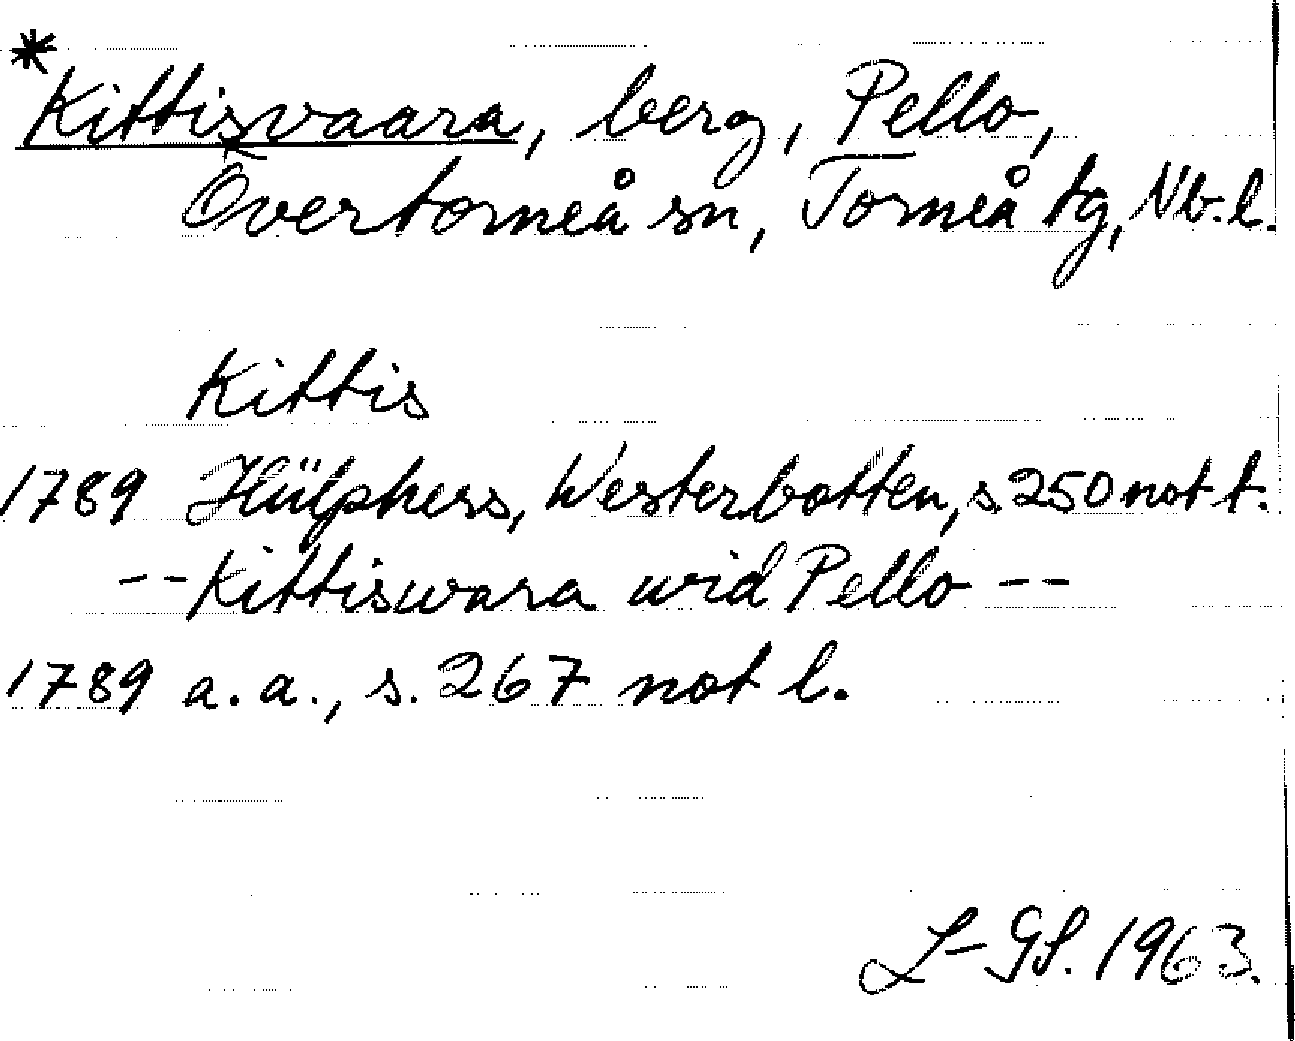 *Kittisvaara, berg, Pello,
Övertorneå sn, Torneå tg, Nb. l.
Kittis
1789 Hülphers, Westerbotten, s 250 not t.
-- Kittiswara wid Pello --
1789 a. a., s. 267 not l.
L-GS. 1963.